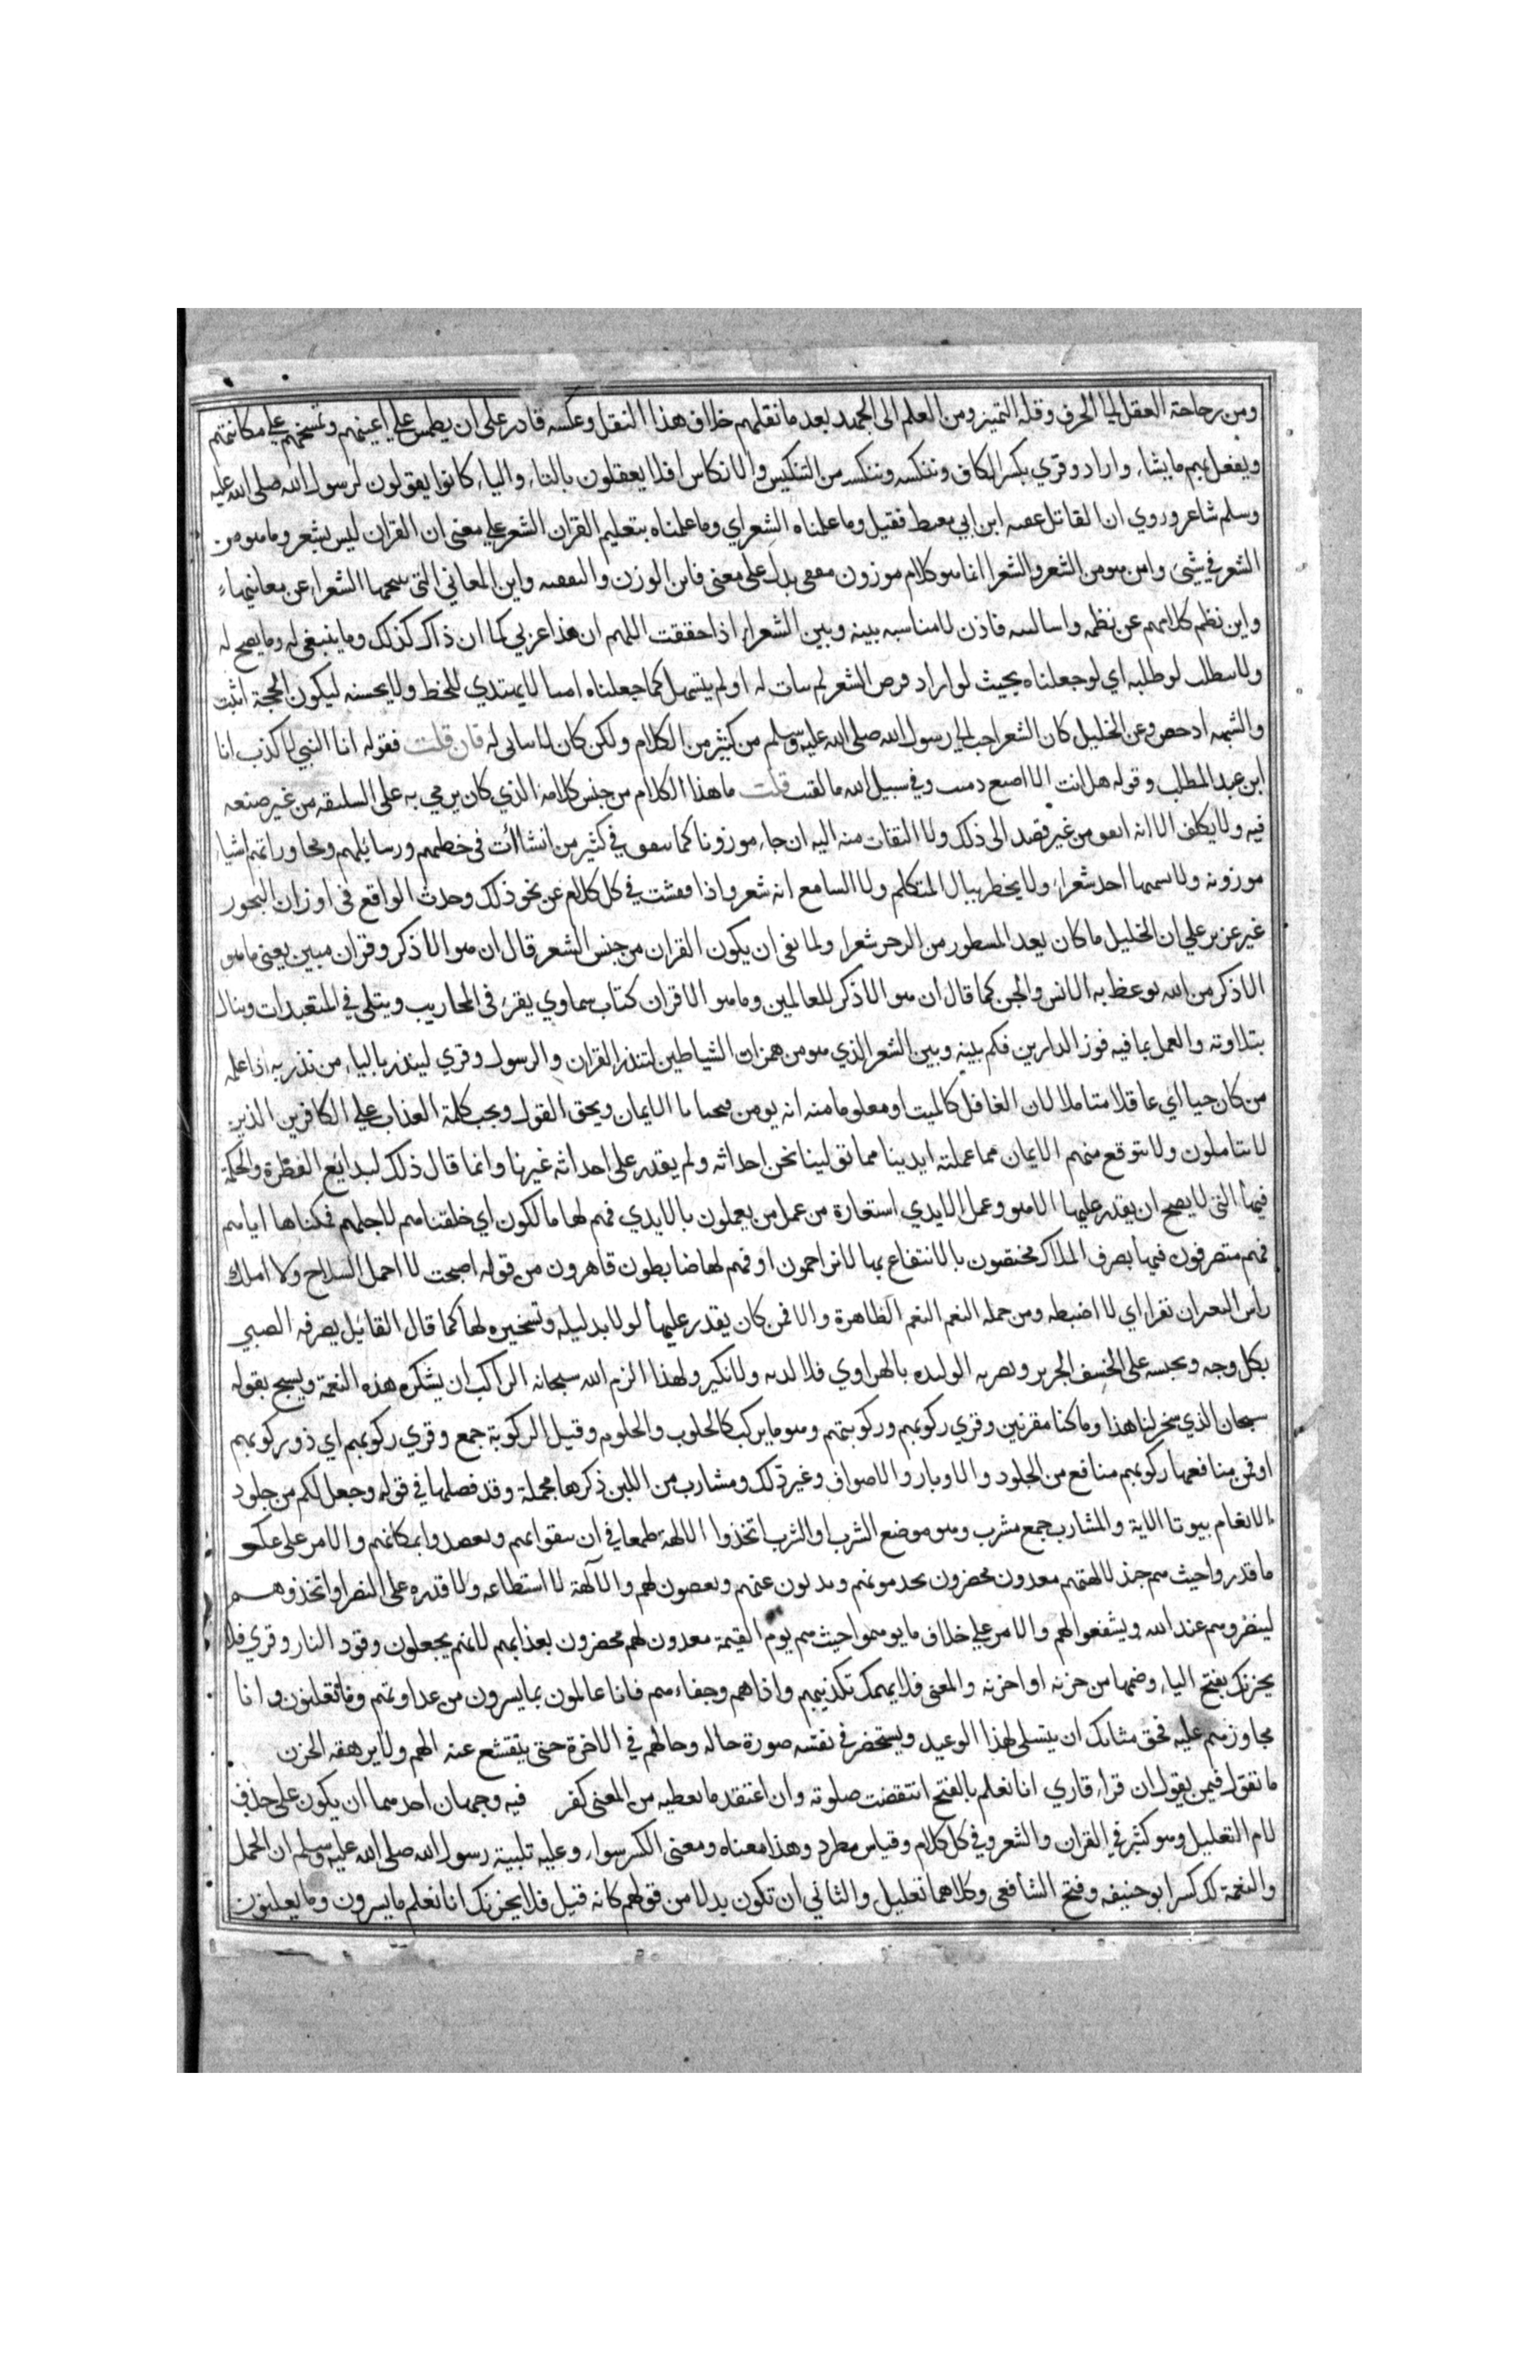 ومن رجاحة العقل الي الخرف وقلة التميز ومن العلم الى الجهد بعد ما نقلهم خلاف هذا النقل وعكسه قادر على ان يطمس علي اعينهم وتسخهم علي مكانتهم
ويفعل بهم ما يشاء واراد وقري بكسر الكاف وننكسه وننكسه من التنكيس والانكاس افلا يعقلون بالتاء والياء كانوا يقولون لرسول الله صلى الله عليه
وسلم شاعر وروي ان القائل عقبه ابن ابي معيط فقيل وما علمناه الشعر اي وما علمناه بتعليم القران الشعر علي معنى ان القران ليس بشعر وما هو من
الشعر في شيئ واين هو من الشعر والشعر انما هو كلام موزون مقفى يدل على معنى فاين الوزن والتقفيه واين المعاني التى ينتحيها الشعراء عن معانيها
واين نظم كلامهم عن نظمه واساليبه فاذن لا مناسبه بينه وبين الشعراء اذا حققت اللهم ان هذا عربي كما ان ذاك كذلك وما ينبغي له وما يصح له
ولا يتطلب لو طلبه اي لو جعلناه بحيث لو اراد قرض الشعر لم يتات له او لم يتسهل كما جعلناه اميا لا يهتدي للخط ولا يحسنه ليكون الحجة اثبت
والشبهه ادحض وعن الخليل كان الشعر احب الي رسول الله صلى الله عليه وسلم من كثير من الكلام ولكن كان لا يتاتى له فان قلت فقوله انا النبي لا كذب انا
ابن عبد المطلب وقوله هل انت الا اصبع دميت وفي سبيل الله ما لقيت قلت ما هذا الكلام من جنس كلامه الذي كان يرمي به على السليقه من غير صنعه
فيه ولا يكلف الا انه اتفق من غير قصد الى ذلك ولا التفات منه اليه ان جاء موزونا كما يتفق في كثير من انشاات في خطبهم ورسائلهم ومحاوراتهم اشياء
موزونه ولا يسميها احد شعرا ولا يخطر ببال المتكلم ولا السامع انه شعر واذا فتشت في كل كلام عن نحو ذلك وحدث الواقع في اوزان البحور
غير عزيز علي ان الخليل ما كان يعد المسطور من الرجز شعرا ولما نفى ان يكون القران من جنس الشعر قال ان هو الا ذكر وقران مبين يعني ما هو
الا ذكر من الله يوعظ به الانس والجن كما قال ان هو الا ذكر للعالمين وما هو الا قران كتاب سماوي يقرء في المحاريب ويتلى في المتعبدات وينال
بتلاوته والعمل بما فيه فوز الدارين فكم بينه وبين الشعر الذي هو من همزات الشياطين لتنذر القران والرسول وقري لينذر بالياء من نذر به اذا علمه
من كان حيا اي عاقلا متاملا لان الغافل كالميت او معلوما منه انه يومن فيحيا بالايمان ويحق القول ويجب كلمة العذاب علي الكافرين الذين
لا يتاملون ولا يتوقع منهم الايمان مما عملته ايدينا مما تولينا نحن احداثه ولم يقدر على احداثه غيرنا وانما قال ذلك لبدائع الفطرة والحكمة
فيها التي لا يصح ان يقدر عليها الا هو وعمل الايدي استعارة من عمل من يعملون بالايدي فهم لها مالكون اي خلقناهم لاجلهم فملكناها اياهم
فهم متصرفون فيها بصرف الملاك مختصون بالانتفاع بها لا يزاحمون او فهم لها ضابطون قاهرون من قوله اصبحت لا احمل السلاح ولا املك
راس البعير ان نفرا اي لا اضبطه ومن جمله النعم النعم الظاهرة والا فمن كان يقدر عليها لولا بدليله وتسخيره لها كما قال القائل يصرفه الصبي
بكل وجه ويحبسه على الخسف الجرير وتضربه الوليده بالهراوي فلا لديه ولا نكير ولهذا الزم الله سبحانه الراكب ان يشكر هذه النعمة ويسبح بقوله
سبحان الذي سخر لنا هذا وما كنا مقرنين وقري ركوبهم وركوبتهم وهو ما يركب كالحلوب والحلوبه وقيل الركوبة جمع وقري ركوبهم اي ذو ركوبهم
او فمن منافعها ركوبهم منافع من الجلود والاوبار والاصواف وغير ذلك ومشارب من اللبن ذكرها مجملة وقد فصلها في قوله وجعل لكم من جلود
الانعام بيوتا الاية والمشارب جمع مشرب وهو موضع الشرب او الشرب اتخذوا الالهة طمعا في ان يتقوا بهم ويعصدوا بمكانهم والامر على عكس
ما قدروا حيث هم جند لالهتهم معدون محضرون يخدمونهم ويذبون عنهم ويغضبون لهم والالهة لا استطاعه ولا قدره على النصر او اتخذوهم
لينصروهم عند الله ويشفعوا لهم والامر علي خلاف ما توهموا حيث هم يوم القيمة معدون لهم محضرون بعذابهم لانهم يجعلون وقود النار وقري فلا
يحزنك بفتح الياء وضمها من حزنه او احزنه والمعنى فلا يهمك تكذيبهم واذاهم وجفاءهم فانا عالمون بما يسرون من عداوتهم وما يعلنون وانا
مجاوزهم عليه فحق مثلك ان يتسلى لهذا الوعيد ويستحضر في نفسه صورة حاله وحالهم في الاخرة حتى يتقشع عنه الهم ولا يرهقه الحزن
ما تقول فيمن يقول ان قراء قاري انا نعلم بالفتح انتقضت صلوته وان اعتقد ما يعطيه من المعنى كفر فيه وجهان احدهما ان يكون على حذف
لام التعليل وهو كثير في القران والشعر وفي كل كلام وقياس مطرد وهذا معناه ومعنى الكسر سواء وعليه تلبية رسول الله صلى الله عليه وسلم ان الحمد
والنعمة لك كسر ابو حنيفه وفتح الشافعي وكلاهما تعليل والثاني ان تكون بدلا من قولهم كانه قيل فلا يحزنك انا نعلم ما يسرون وما يعلنون